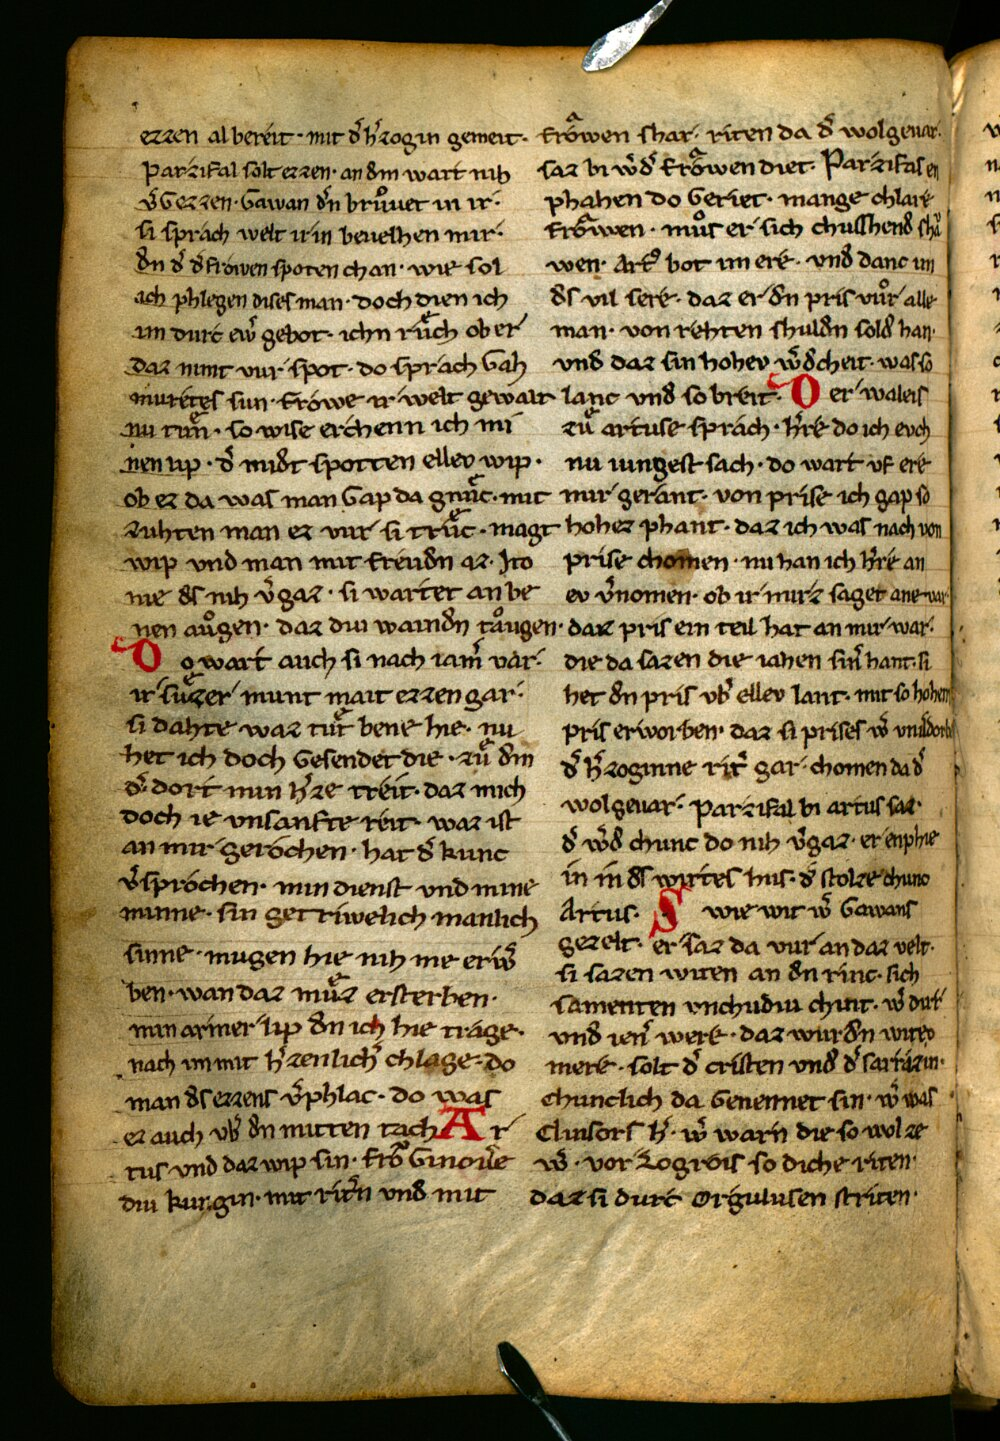 ezzen al bereit · mit d͛ h͛zogin gemeit ·
Parzifal solt ezzen · an dm wart nih
v͛gezzen · Gawan dn bruͦuet in ir ·
si sprach welt ir in beuelhen mir ·
dn d͛ d͛ frowen spoten chan · wie sol
ich phlegen dises man · doch dien ich
im durc ew͛ gebot · ichn ruͤch ob er
daz nimt vur spot · do sprach Gah
muretes sun · frowe ir welt gewalt
nu tuͤn · so wise erchenn ich mi
nen lip · d͛ midt spotten ellev wip ·
ob ez da was man Gap da gnuͤc · mit
zuhten man ez vur si truͤc · magt
wip vnd man mit freudn az · Ito
nie ds nih v͛gaz · si wartet an be
nen auͦgen · daz diu waindn taͮugen ·
Do wart auch si nach iam͛ var ·
ir suͤzer munt mait ezzen gar ·
si dahte waz tuͤt bene hie · nu
het ich doch Gesendet die · zuͤ dm
d͛ dort min h͛ze treit · daz mich
doch ie vnsanfte reit · waz ist
an mir gerochen · hat d͛ kunc
v͛sprochen · min dienst vnd mine
minne · sin getriwelich manlich
sinne · mugen hie nih me erw͛
ben · wan daz muͤz ersterben ·
min armer lip dn ich hie trage ·
nach im mit h͛zenlich͛ chlage · do
man ds ezzens v͛phlac · do was
ez auch vb͛ dn mitten tach Ar
tus vnd daz wip sin · froͮ Ginou͛e
diu kunegin · mit rit͛n vnd mit
froͮwen shar · riten da d͛ wolgeuar ·
saz bi w͛d͛ froͮwen diet · Parzifals en
phahen do Geriet · mange chlare
froͮwen · muͦs er sich chusshend sha
wen · Art͛ bot im ere · vnd danc im
ds vil sere · daz er dn pris vuͦr alle
man · von rehten shuldn sold han ·
vnd daz sin hohev w͛dcheit · was so
lanc vnd so breit · Der waleis
zuͤ artuse sprach · h͛re do ich evch
nu iungest sach · do wart vf ere
mir gerant · von prise ich gap so
hohez phant · daz ich was nach von
prise chomen · nu han ich h͛re an
ev v͛nomen · ob ir mirz saget ane var
daz pris ein teil hat an mir war ·
die da sazen die iahen sin͛ hant · si
het dn pris vb͛ ellev lant · mit so hohem
pris erworben · daz si prises w͛ vnu͛dorbn
d͛ h͛zoginne rit͛ gar · chomen da d͛
wolgeuar · Parzifal bi artus saz ·
d͛ w͛d chunc do nih v͛gaz · er enphie
in in ds wirtes hus · d͛ stolze chunc
Artus · Swie wit w͛ Gawans
gezelt · er saz da vur an daz velt ·
si sazen witen an dn rinc · sich
samenten vnchudiu chint · w͛ dirr
vnd ien͛ were · daz wurdn witev
mere · solt d͛ cristen vnd d͛ sarrazin ·
chunclich da Genennet sin · w͛ was
Clinsors h͛ · w͛ warn die so wol ze
w͛ · vor Logrois so diche riten ·
daz si durc Orgulusen striten ·